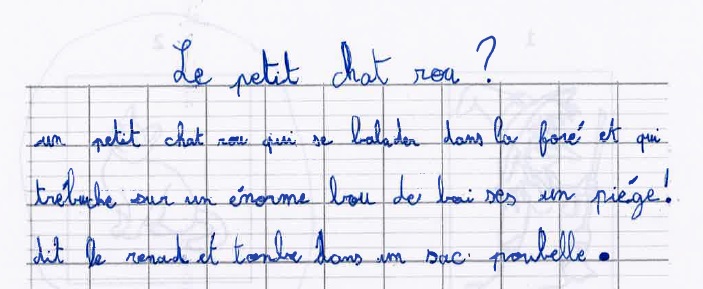 Le petit chat rou ?
un petit chat rou qui se balader dans la foré et qui
trébuche sur un énorme bou de bai ses un piége!
dit le renad et tombe dans un sac poubelle.